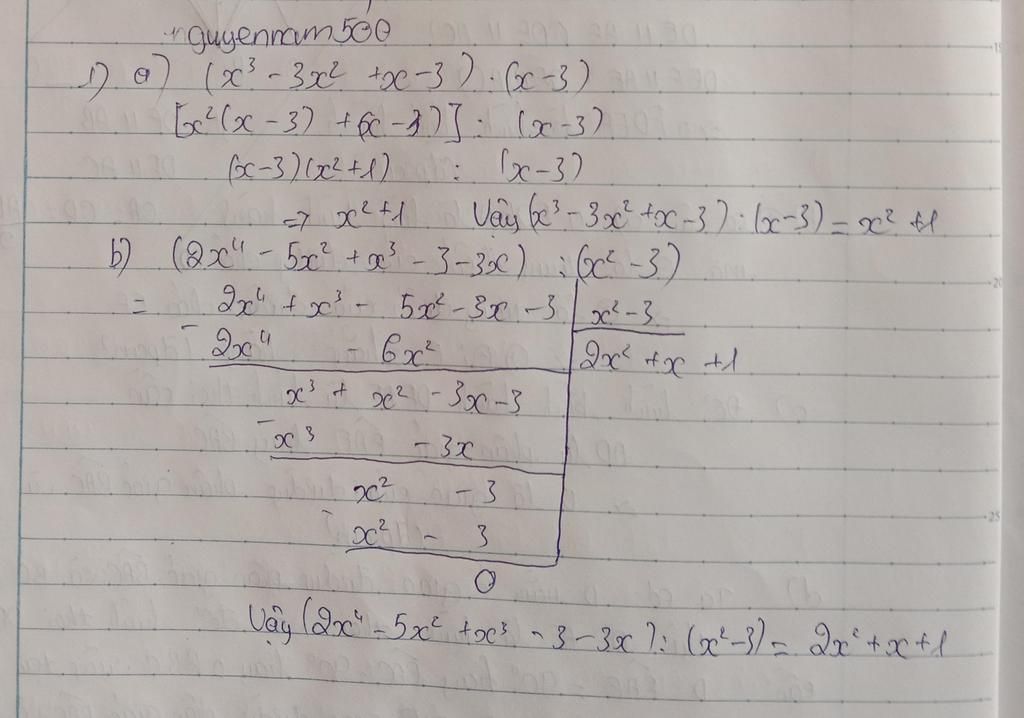 nguyennam500
1) a) (x³ - 3x² + x - 3) : (x - 3)
[x²(x - 3) + (x - 3)] : (x - 3)
(x - 3)(x² + 1) : (x - 3)
=> x² + 1 Vậy (x³ - 3x² + x - 3) : (x - 3) = x² + 1
b) (2x⁴ - 5x² + x³ - 3 - 3x) : (x² - 3)
= 2x⁴ + x³ - 5x² - 3x - 3 | x² - 3
- 2x⁴ - 6x² | 2x² + x + 1
x³ + x² - 3x - 3
- x³ - 3x
x² - 3
- x² - 3
0
Vậy (2x⁴ - 5x² + x³ - 3 - 3x) : (x² - 3) = 2x² + x + 1